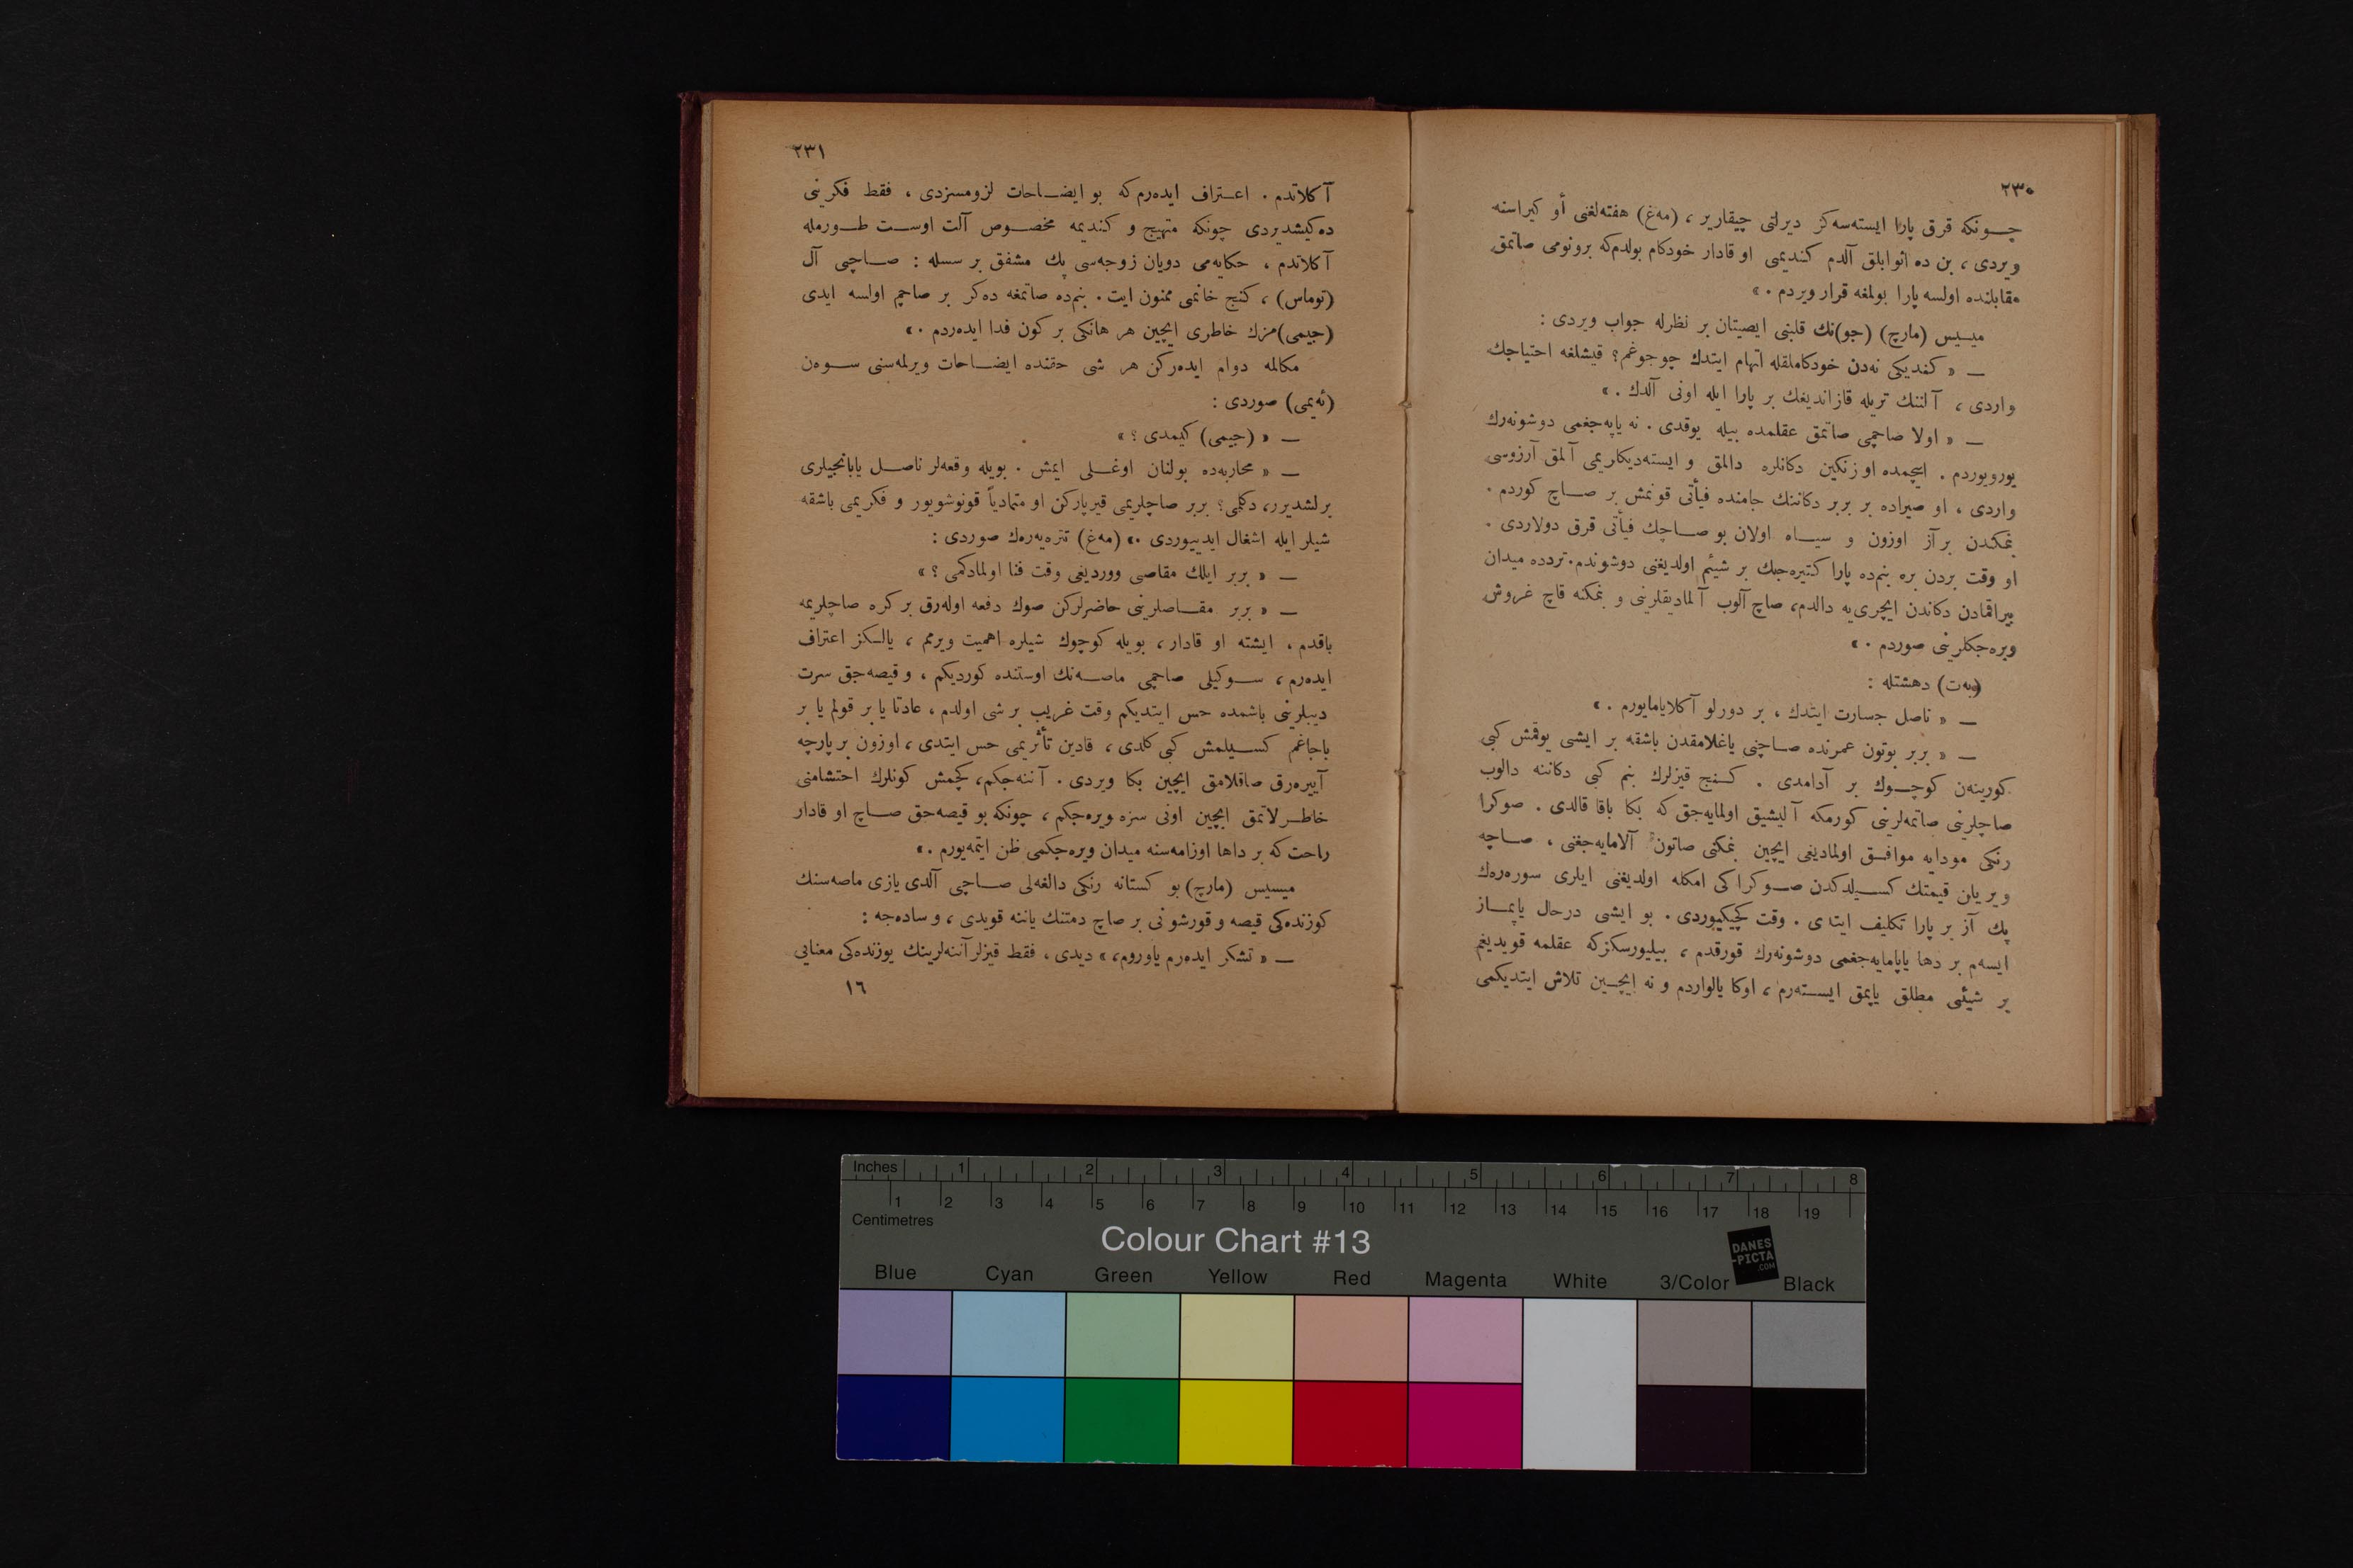 ٢٣٠
چونكه قرق پارا ايسته‌سه‌كز ديرلتى چيقارير ، (مه‌غ) هفته‌لغنى أو كيراسنه
ويردى ، بن ده اثوابلق آلدم كنديمى او قادار خودكام بولدم‌كه برونومى صاتمق
مقابلنده اولسه پارا بولمغه قرار ويردم . »
ميسيس (مارچ) (جو)نك قلبنى ايصيتان بر نظرله جواب ويردى :
— « كنديكى نه‌دن خودكاملقله اتهام ايتدك چوجوغم؟ قيشلغه احتياجك
واردى ، آلننك تريله قازانديغك بر پارا ايله اونى آلدك . »
— « اولا صاچمى صاتمق عقلمده بيله يوقدى . نه ياپه‌جغمى دوشونه‌رك
يورويوردم . ايچمده او زنكين دكانلره دالمق و ايسته‌ديكلريمى آلمق آرزوسى
واردى ، او صيراده بر بربر دكاننك جامنده فيأتى قونمش بر صاچ كوردم .
بنمكندن برآز اوزون و سياه اولان بو صاچك فيأتى قرق دولاردى .
او وقت بردن بره بنم‌ده پارا كتيره‌جك بر شيئم اولديغنى دوشوندم . تردده ميدان
بيراقمادن دكاندن ايچرى‌يه دالدم، صاچ آلوب آلماديقلرينى و بنمكنه قاچ غروش
ويره‌جكلرينى صوردم . »
(به‌ت) دهشتله :
— « ناصل جسارت ايتدك ، بر دورلو آكلايامايورم . »
— « بربر بوتون عمرنده صاچنى ياغلامقدن باشقه بر ايشى يوقمش كبى
كورينه‌ن كوچوك بر آدامدى . كنج قيزلرك بنم كبى دكاننه دالوب
صاچلرينى صاتمه‌لرينى كورمكه آليشيق اولمايه‌جق كه بكا باقا قالدى . صوكرا
رنكى مودايه موافق اولماديغى ايچين بنمكنى صاتون آلامايه‌جغنى ، صاچه
ويريلن قيمتك كسيلدكدن صوكراكى امكله اولديغنى ايلرى سوره‌رك
پك آز بر پارا تكليف ايتدى . وقت كچيكيوردى . بو ايشى درحال ياپماز
ايسه‌م بر دها ياپامايه‌جغمى دوشونه‌رك قورقدم ، بيليورسكزكه عقلمه قويديغم
بر شيئى مطلق ياپمق ايسته‌رم ، اوكا يالواردم و نه ايچين تلاش ايتديكمى
٢٣١
آكلاتدم . اعتراف ايده‌رم‌كه بو ايضاحات لزومسزدى ، فقط فكرينى
ده‌كيشديردى چونكه متهيج و كنديمه مخصوص آلت اوست طورمله
آكلاتدم ، حكايه‌مى دويان زوجه‌سى پك مشفق بر سسله : صاچى آل
(توماس) ، كنج خانمى ممنون ايت . بنم‌ده صاتمغه ده‌كر بر صاچم اولسه ايدى
(جيمى)مزك خاطرى ايچين هر هانكى بر كون فدا ايده‌ردم . »
مكالمه دوام ايدركن هر شى حقنده ايضاحات ويرلمه‌سنى سوه‌ن
(ئه‌يمى) صوردى :
— « (جيمى) كيمدى ؟ »
— « محاربه‌ده بولنان اوغلى ايمش . بويله وقعه‌لر ناصل يابانجيلرى
برلشديرر، دكلمى؟ بربر صاچلريمى قيرپاركن او متمادياً قونوشويور و فكريمى باشقه
شيلر ايله اشغال ايدييوردى . » (مه‌غ) تتره‌يه‌رك صوردى :
— « بربر ايلك مقاصى وورديغى وقت فنا اولمادكمى ؟ »
— « بربر مقاصلرينى حاضرلركن صوك دفعه اوله‌رق بر كره صاچلريمه
باقدم . ايشته او قادار ، بويله كوچوك شيلره اهميت ويرمم ، يالكز اعتراف
ايده‌رم ، سوكيلى صاچمى ماصه‌نك اوستنده كورديكم ، و قيصه‌جق سرت
ديبلرينى باشمده حس ايتديكم وقت غريب بر شى اولدم ، عادتا يا بر قولم يا بر
باجاغم كسيلمش كبى كلدى ، قادين تأثريمى حس ايتدى ، اوزون بر پارچه
آييره‌رق صاقلامق ايچين بكا ويردى . آننه‌جكم، كچمش كونلرك احتشامنى
خاطرلاتمق ايچين اونى سزه ويره‌جكم ، چونكه بو قيصه‌جق صاچ او قادار
راحت كه بر داها اوزامه‌سنه ميدان ويره‌جكمى ظن ايتمه‌يورم . »
ميسيس (مارچ) بو كستانه رنكى دالغه‌لى صاچى آلدى يازى ماصه‌سنك
كوزنده‌كى قيصه و قورشونى بر صاچ دمتنك ياننه قويدى ، و ساده‌جه :
— « تشكر ايده‌رم ياوروم، » ديدى ، فقط قيزلر آننه‌لرينك يوزنده‌كى معنايى
١٦
Inches 1 2 3 4 5 6 7 8
1 2 3 4 5 6 7 8 9 10 11 12 13 14 15 16 17 18 19
Centimetres
Colour Chart #13
DANES
-PICTA
.COM
Blue Cyan Green Yellow Red Magenta White 3/Color Black